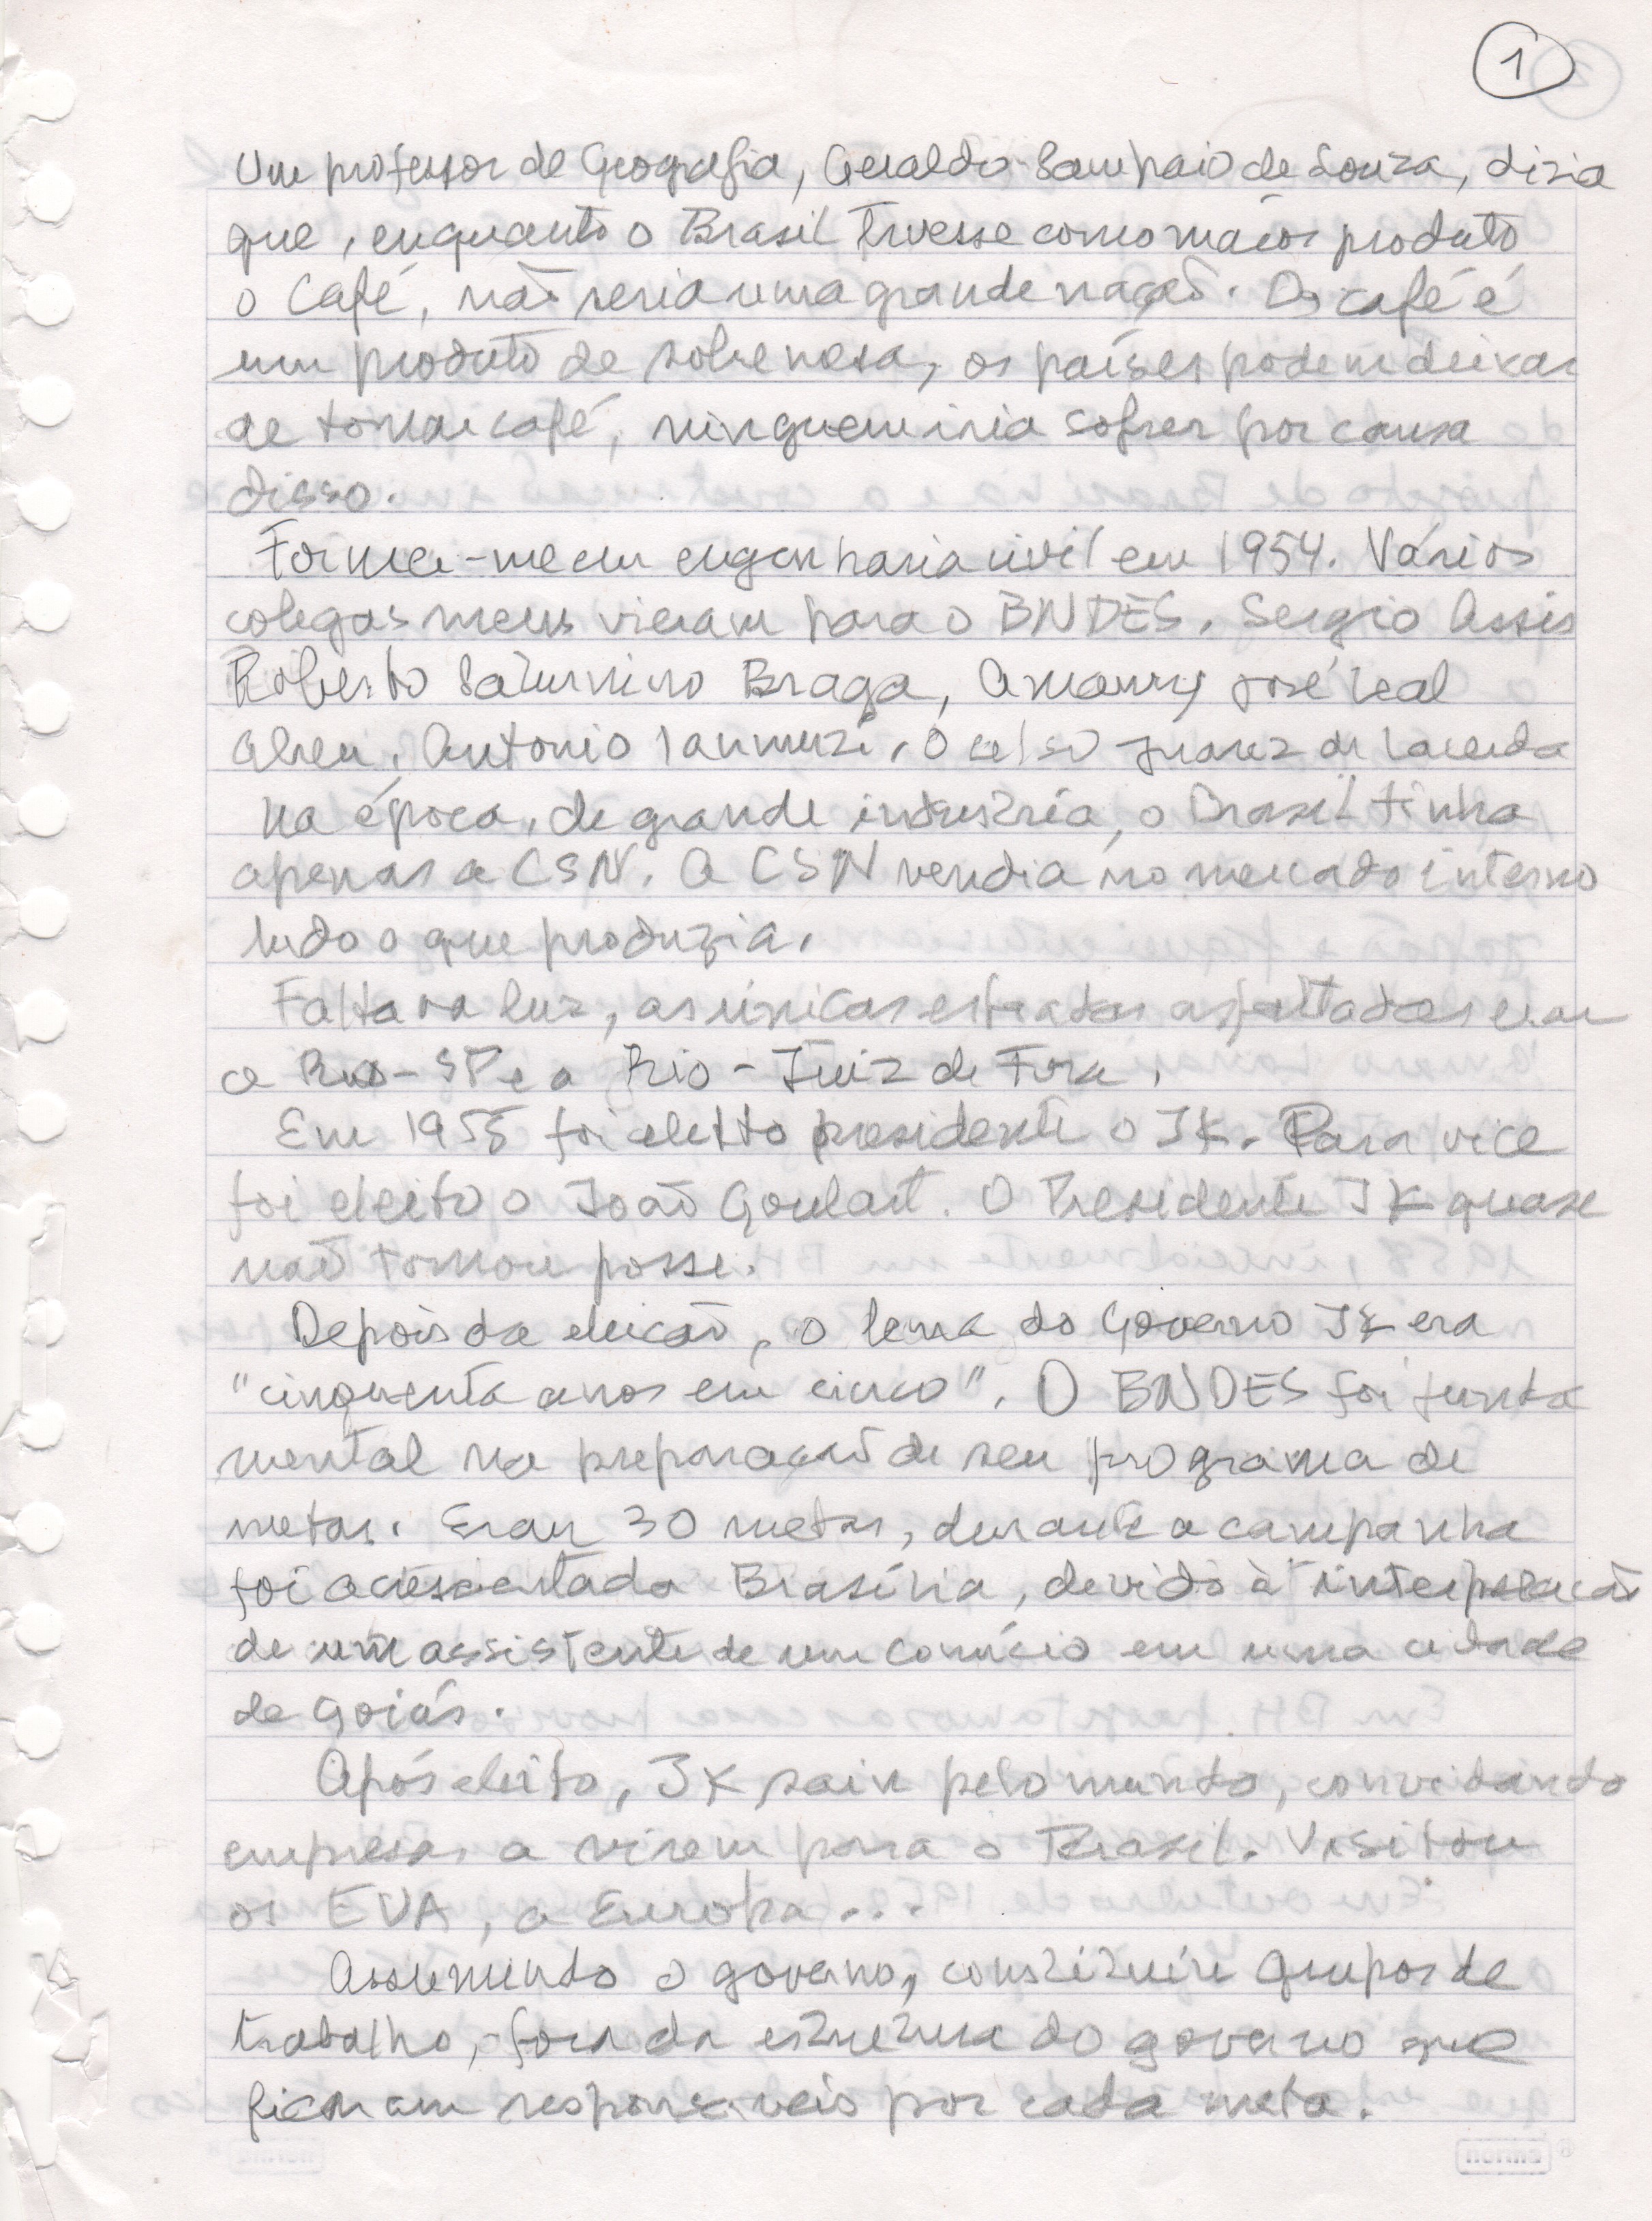 1
Um professor de Geografia, Geraldo Sampaio de Souza, dizia
que, enquanto o Brasil tivesse como maior produto
o Café, não seria uma grande nação. O café é
um produto de sobremesa, os países podem deixar
de tomar café, ninguem iria sofrer por causa
disso.
Formei-me em engenharia civil em 1954. Vários
colegas meus vieram para o BNDES. Sergio Assis
Roberto Saturnino Braga, Amaury José Leal
Abreu, Antonio Iannuzi, o Celso Juarez de Lacerda
Na época, de grande indústria, o Brasil tinha
apenas a CSN. A CSN vendia no mercado interno
tudo o que produzia.
Faltava luz, as únicas estradas asfaltadas eram
a Rio-SP e a Rio-Juiz de Fora.
Em 1955 foi eleito presidente o JK. Para vice
foi eleito o João Goulart. O Presidente JK quase
não tomou posse.
Depois da eleição, o lema do Governo JK era
"cinquenta anos em cinco". O BNDES foi funda
mental na preparação de seu programa de
metas. Eram 30 metas, durante a campanha
foi acrescentada Brasília, devido à interpelação
de um assistente de um comício em uma cidade
de Goiás.
Após eleito, JK saiu pelo mundo, convidando
empresas a virem para o Brasil. Visitou
os EUA, a Europa...
Assumindo o governo, constituiu grupos de
trabalho, fora da estrutura do governo que
ficaram responsáveis por cada meta.
norma